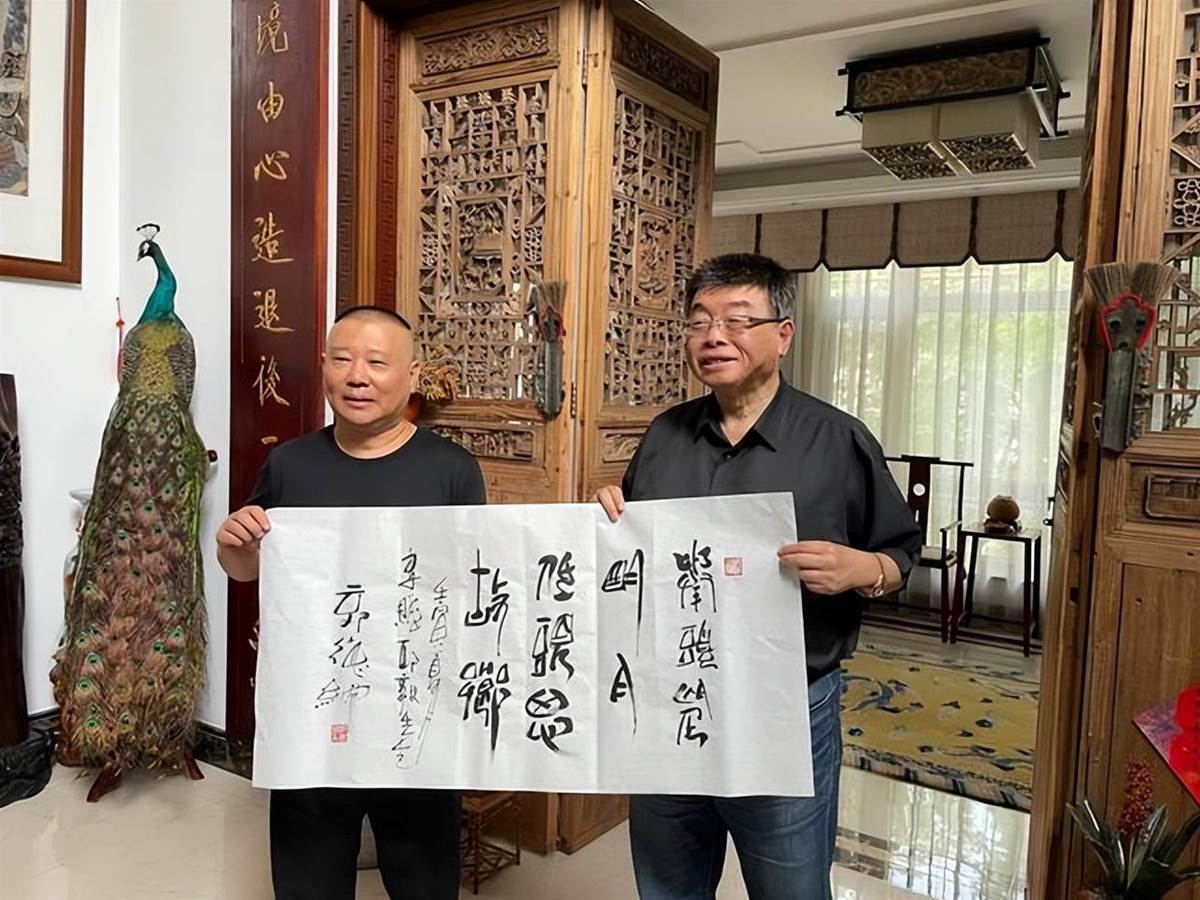 境由心造退後一
舉頭望
明月
低頭思
故鄉
壬寅
邱毅先生
郭德綱